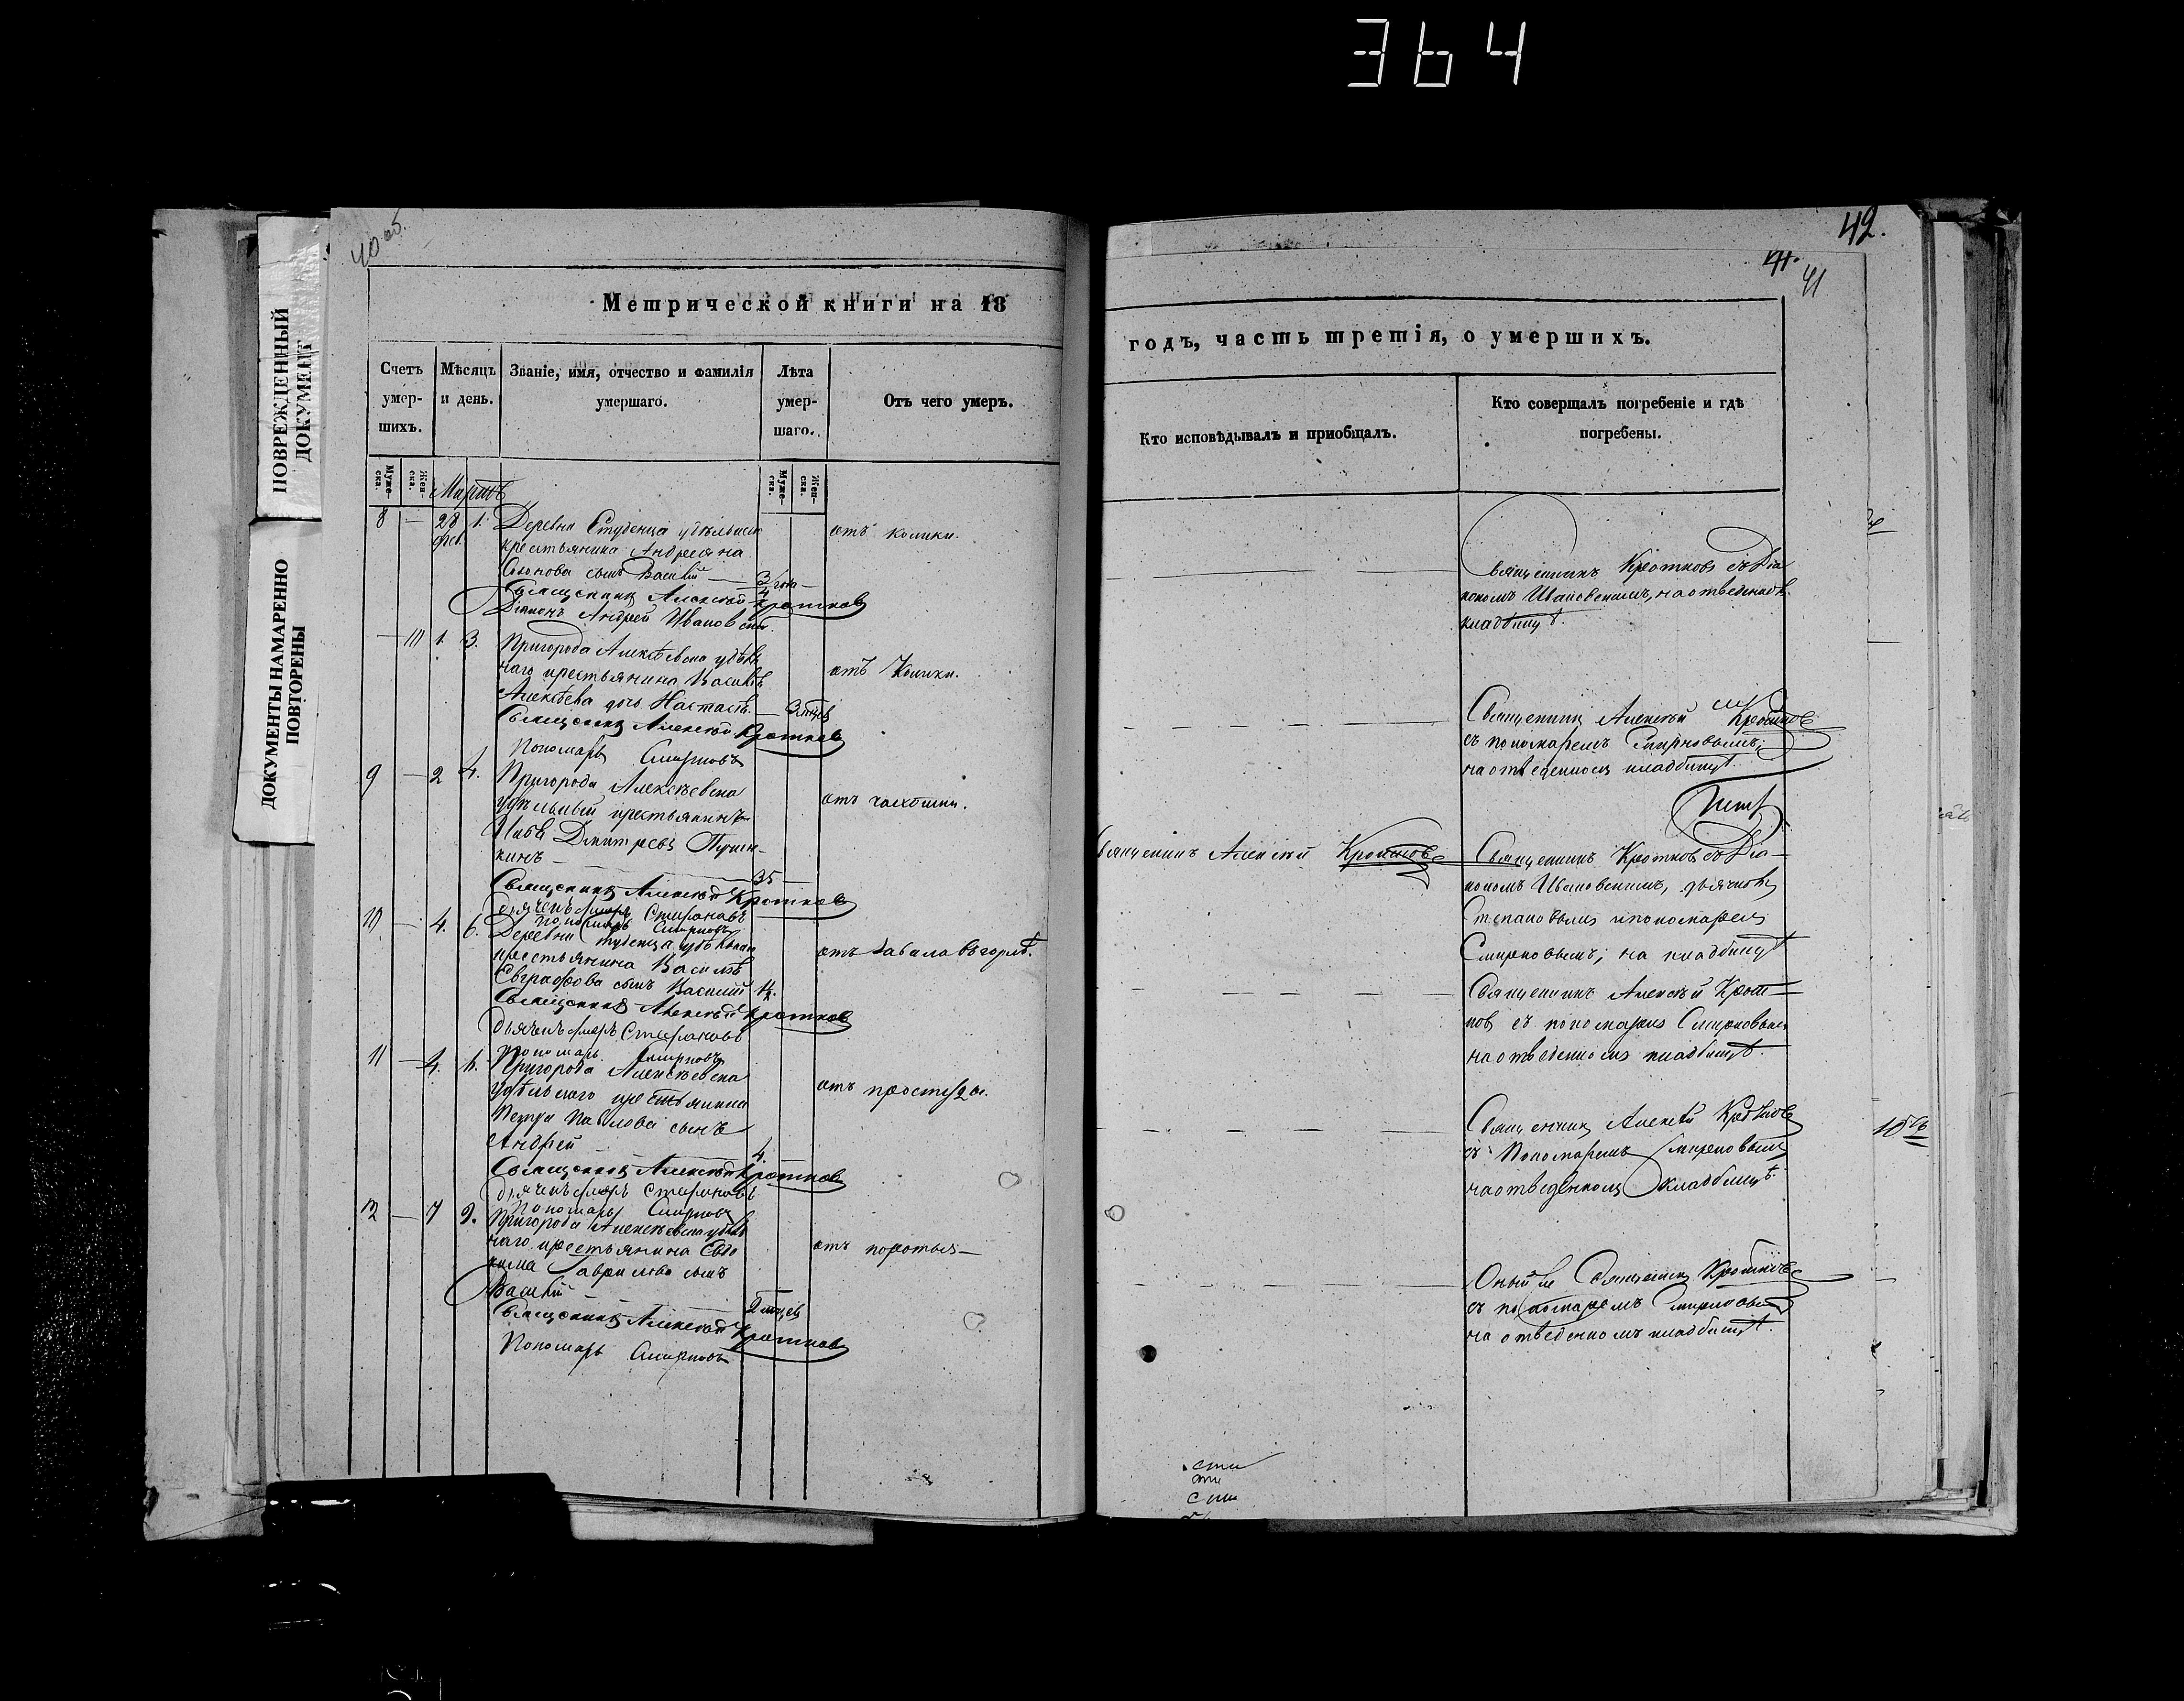 364
ПОВРЕЖДЕННЫЙ
ДОКУМЕНТ
ДОКУМЕНТЫ НАМАРЕННО
ПОВТОРЕНЫ
40 об.
Метрической книги на 18
Счетъ умер- шихъ.
Мѣсяцъ и день.
Званіе, имя, отчество и фамилія умершаго.
Лѣта умер- шаго.
Отъ чего умеръ.
Муже- ска.
Жен- ска.
Муже- ска.
Жен- ска.
Мартъ
8 — 28 1. Деревни Студенца удѣльнаго
фев. крестьянина Андреяна
сынъ Василій — 3/4 года —
отъ колики.
Священникъ Алексѣй Кротковъ
Діаконъ Андрей Ивановскій
— 1. 3. Пригорода Алексѣевска удѣль
наго крестьянина Василія
Алексѣева дочь Настасія — 3 мѣсяц
отъ колики.
Священникъ Алексѣй Кротковъ
Пономарь Смирновъ
9 — 2 4. Пригорода Алексѣевска
удѣльный крестьянинъ
Дмитріевъ
кинъ — 35 —
отъ чахотки.
Священникъ Алексѣй Кротковъ
Степановъ
Пономарь Смирновъ
10 — 4. 6. Деревни Студенца удѣльнаго
крестьянина Василія
Евграфова сынъ Василій
отъ въ горлѣ.
Священникъ Алексѣй Кротковъ
Степановъ
Пономарь Смирновъ
11 — 4. 6. Пригорода Алексѣевска
удѣльнаго крестьянина
Петра Павлова сынъ
Андрей 4.
отъ простуды.
Священникъ Алексѣй Кротковъ
Степановъ
Пономарь Смирновъ
12 — 7 9. Пригорода Алексѣевска удѣль
наго крестьянина Евдо
кима Гаврилова сынъ
Василій 2 мѣсяц
отъ
Священникъ Алексѣй Кротковъ
Пономарь Смирновъ
42.
41.
41
годъ, часть третія, о умершихъ.
Кто исповѣдывалъ и приобщалъ.
Кто совершалъ погребеніе и гдѣ погребены.
Священникъ Кротковъ съ Діа
кономъ Ивановскимъ, на отведенномъ
кладбищѣ.
Священникъ Алексѣй Кротковъ
съ пономаремъ Смирновымъ;
на отведенномъ кладбищѣ.
Священникъ Алексѣй Кротковъ
Священникъ Кротковъ съ Діа—
кономъ Ивановскимъ, дьячкомъ
Степановымъ и пономаремъ
Смирновымъ; на кладбищѣ
Священникъ Алексѣй Крот—
ковъ съ пономаремъ Смирновымъ
на отведенномъ кладбищѣ.
Священникъ Алексѣй Кротковъ
съ Пономаремъ Смирновымъ
на отведенномъ кладбищѣ.
Оный же Священникъ Кротковъ
съ пономаремъ Смирновымъ
на отведенномъ кладбищѣ.